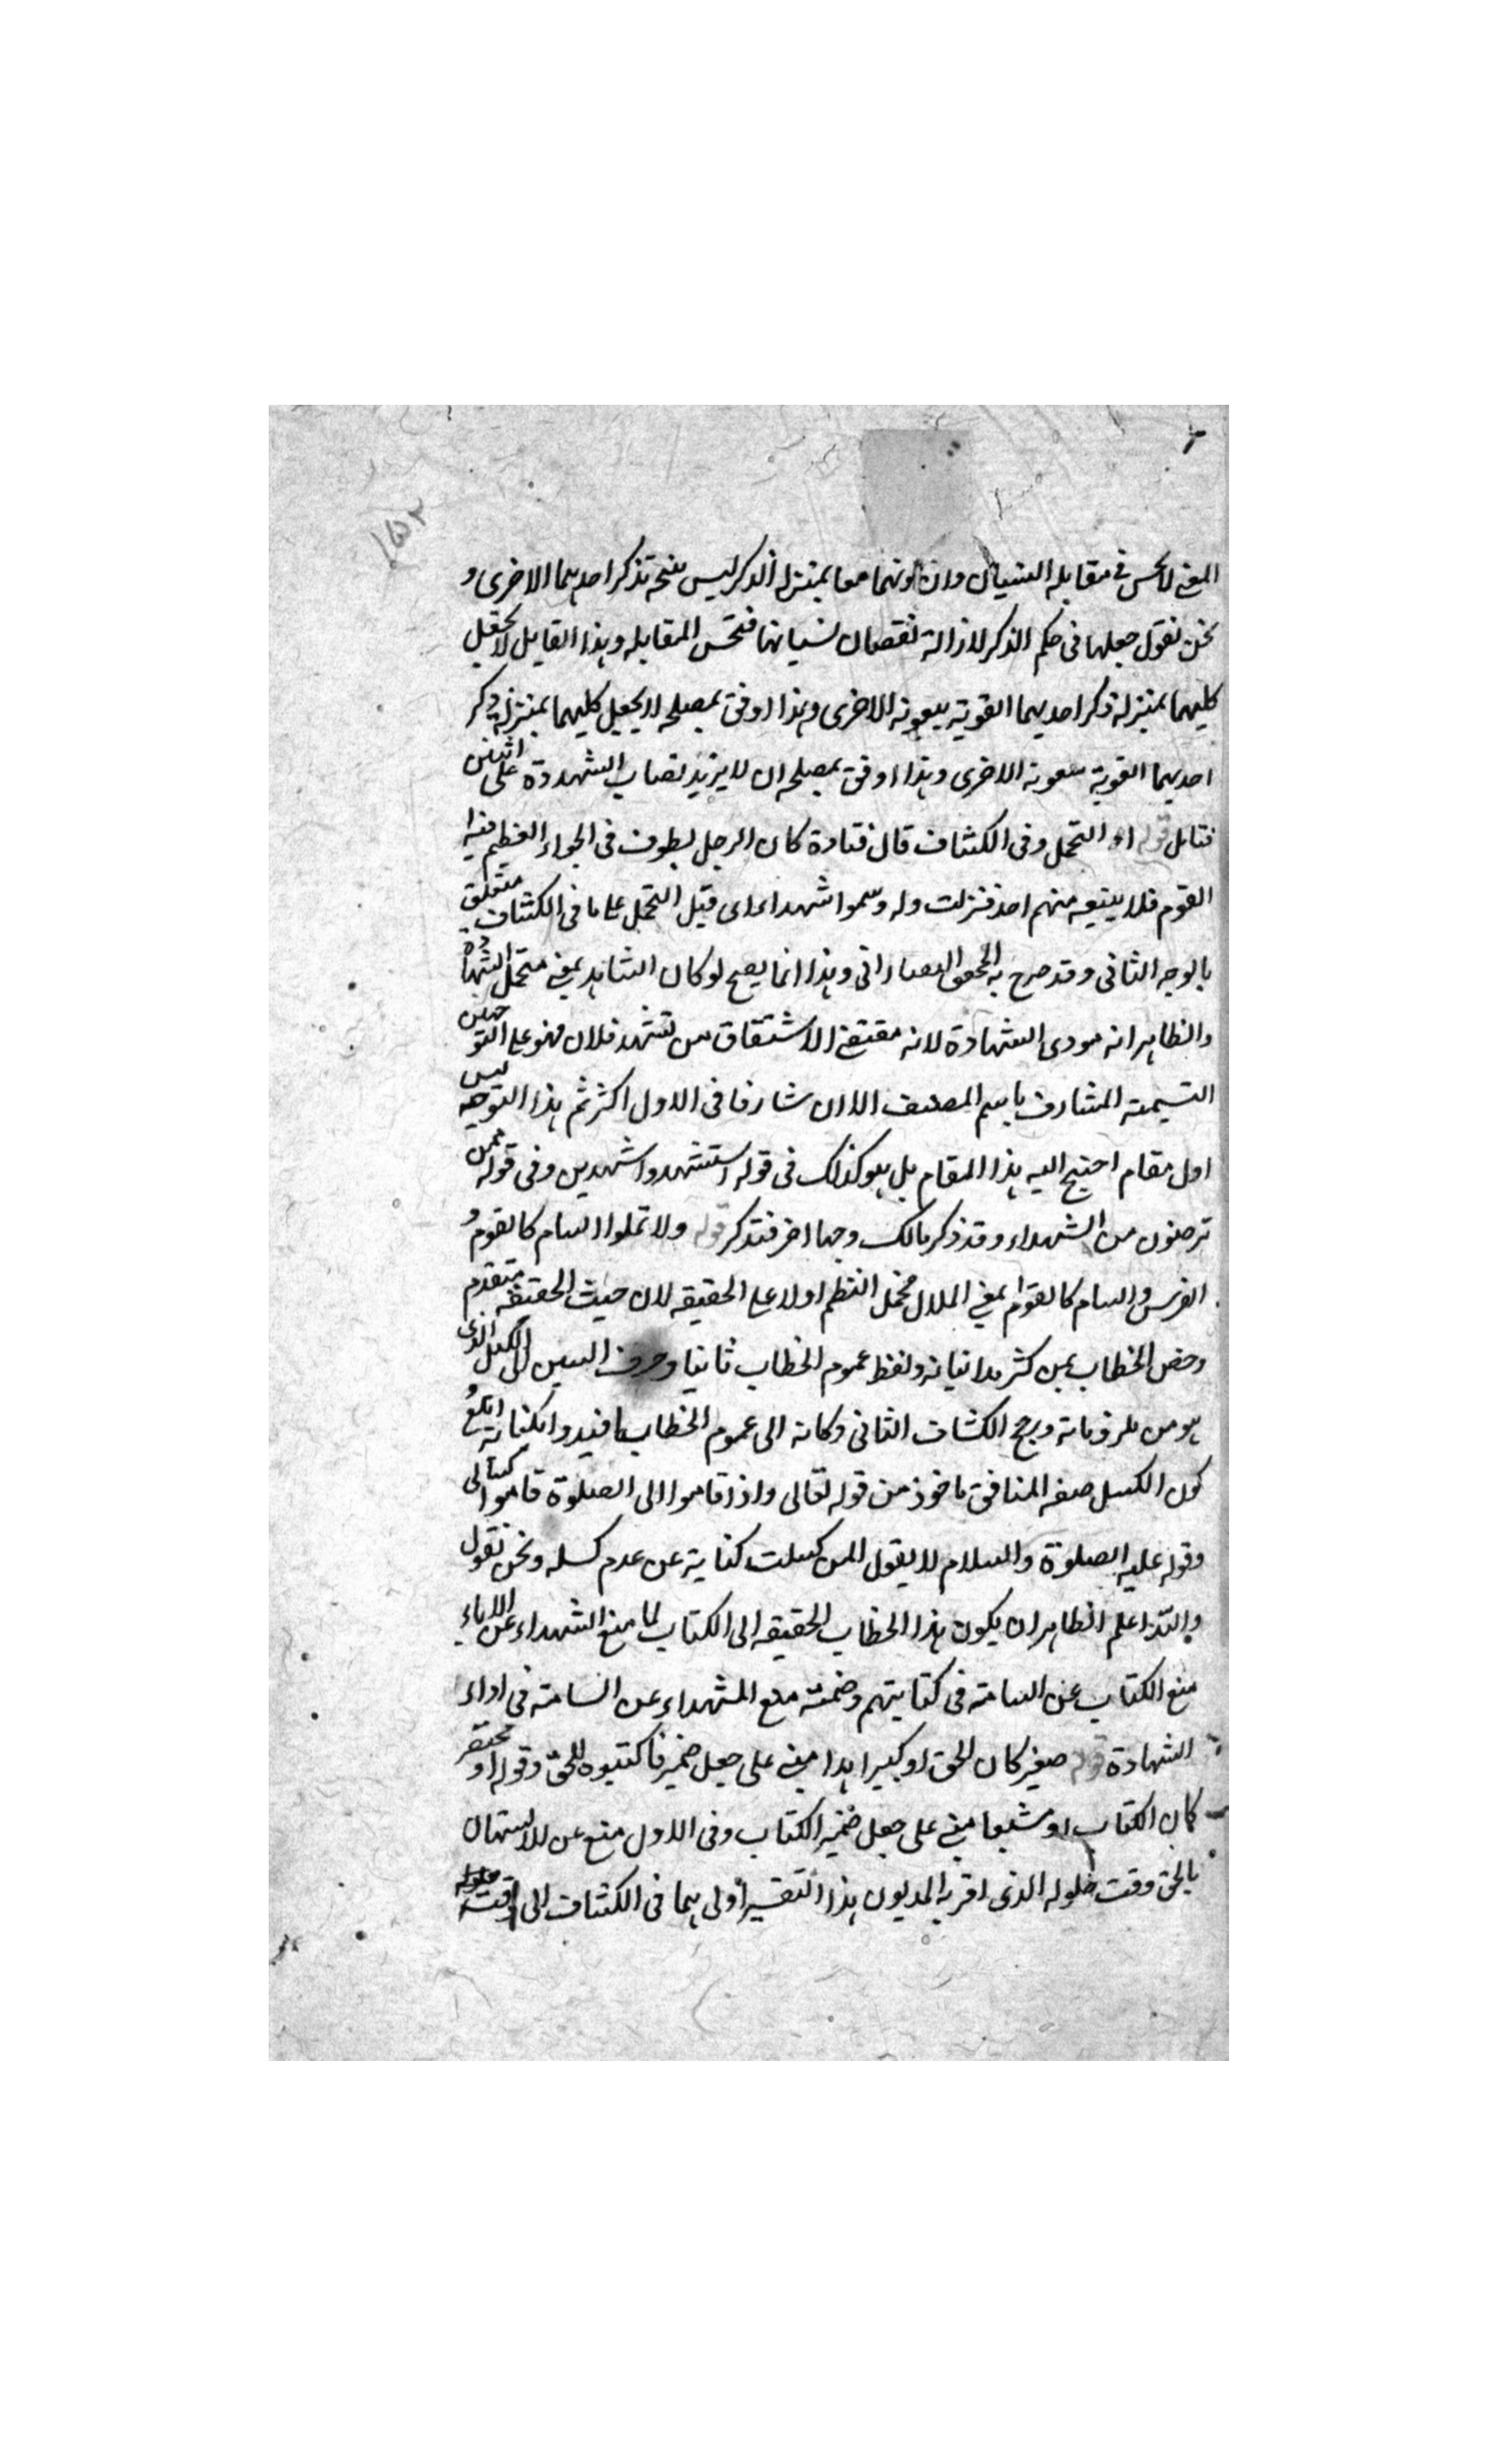 ١٥٢
المعنى لا يحسن في مقابله النسيان وان كونهما معا بمنزله الذكر ليس نتيجة تذكر احديهما الاخرى و
نحن نقول جعلها فى حكم الذكر لازالة نقصان نسيانها فتحسن المقابله وهذا القايل لا يجعل
كليهما بمنزلة ذكر احديهما القوية بمعونه الاخرى وهذا اوفق بمصلحه لا يجعل كليهما بمنزلة ذكر
احديهما القوية بمعونة الاخرى وهذا اوفق بمصلحه ان لا يزيد نصاب الشهدوة على اثنين
فتامل قوله او التحمل وفى الكشاف قال قتادة كان الرجل يطوف فى الجواء العظيم فيه
القوم فلا يتبعه منهم احد فنزلت وله وسموا شهداء اى قبل التحمل على ما فى الكشاف متعلق
بالوجه الثانى وقد صرح به المحقق التفتازانى وهذا انما يصح لو كان الشاهد بمعنى متحمل الشهادة
والظاهر انه مودى الشهادة لانه مقتضى الاشتقاق من تشهد فلان فهو على التوجهين
التسمية المشارف باسم المصنف الا ان شارفا فى الاول اكثر ثم هذا التوجه ليس
اول مقام احتيج اليه هذا المقام بل هو كذلك فى قوله استشهدوا شهدين وفى قوله ممن
ترضون من الشهداء وقد ذكر مالك وجها اخر فتذكر قوله ولا تملوا السام كالقوم و
الفرس والسام كالقوام بمعنى الملال فحمل النظم اولا على الحقيقه لان حيث الحقيقه متقدم
وخص الخطاب بمن كثر مدايناته ولفظ عموم الخطاب ثانيا وحرف السين الى الكسل الذى
هو من وكانه الى عموم الخطاب
كون الكسل صفه المنافق ماخوذ من قوله تعالى واذا قاموا الى الصلوة قاموا كسالى
وقوله عليه الصلوة والسلام لا يقول المومن كسلت كناية عن عدم كسله ونحن نقول
والله اعلم الظاهر ان يكون هذا الخطاب الحقيقه الى الكتاب لما منع الشهداء عن الاباء
منع الكتاب عن السامة فى كتابتهم وضمنه منع الشهداء عن السامة فى اداء
الشهادة قوله صغير كان الحق او كبيرا هذا مبنى على جعل ضمير فاكتبوه للحق وقوله او مختصر
كان الكتاب او مشبعا مبنى على جعل ضمير الكتاب وفى الاول منع عن الاستهان
بالحق وقت حلوله الذى اقر به المديون هذا التفسير اولى مما فى الكشاف الى وقت حلوله